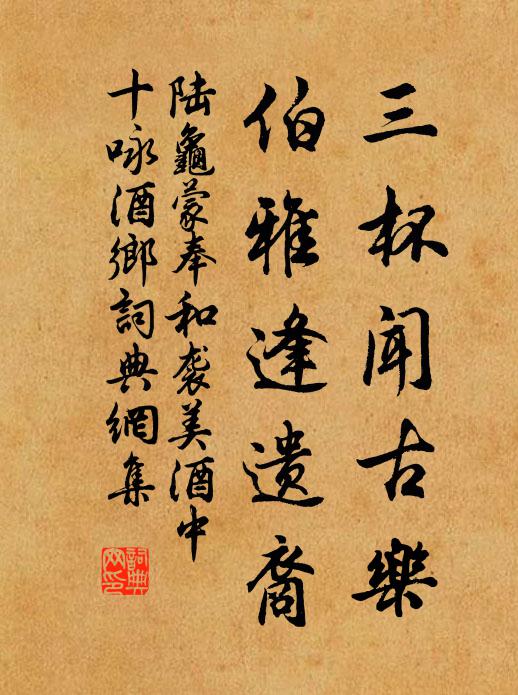 三杯闻古樂
伯雅逢遗裔
陆龜蒙奉和袭美酒中
十咏酒鄉詞典網集
詞典網印